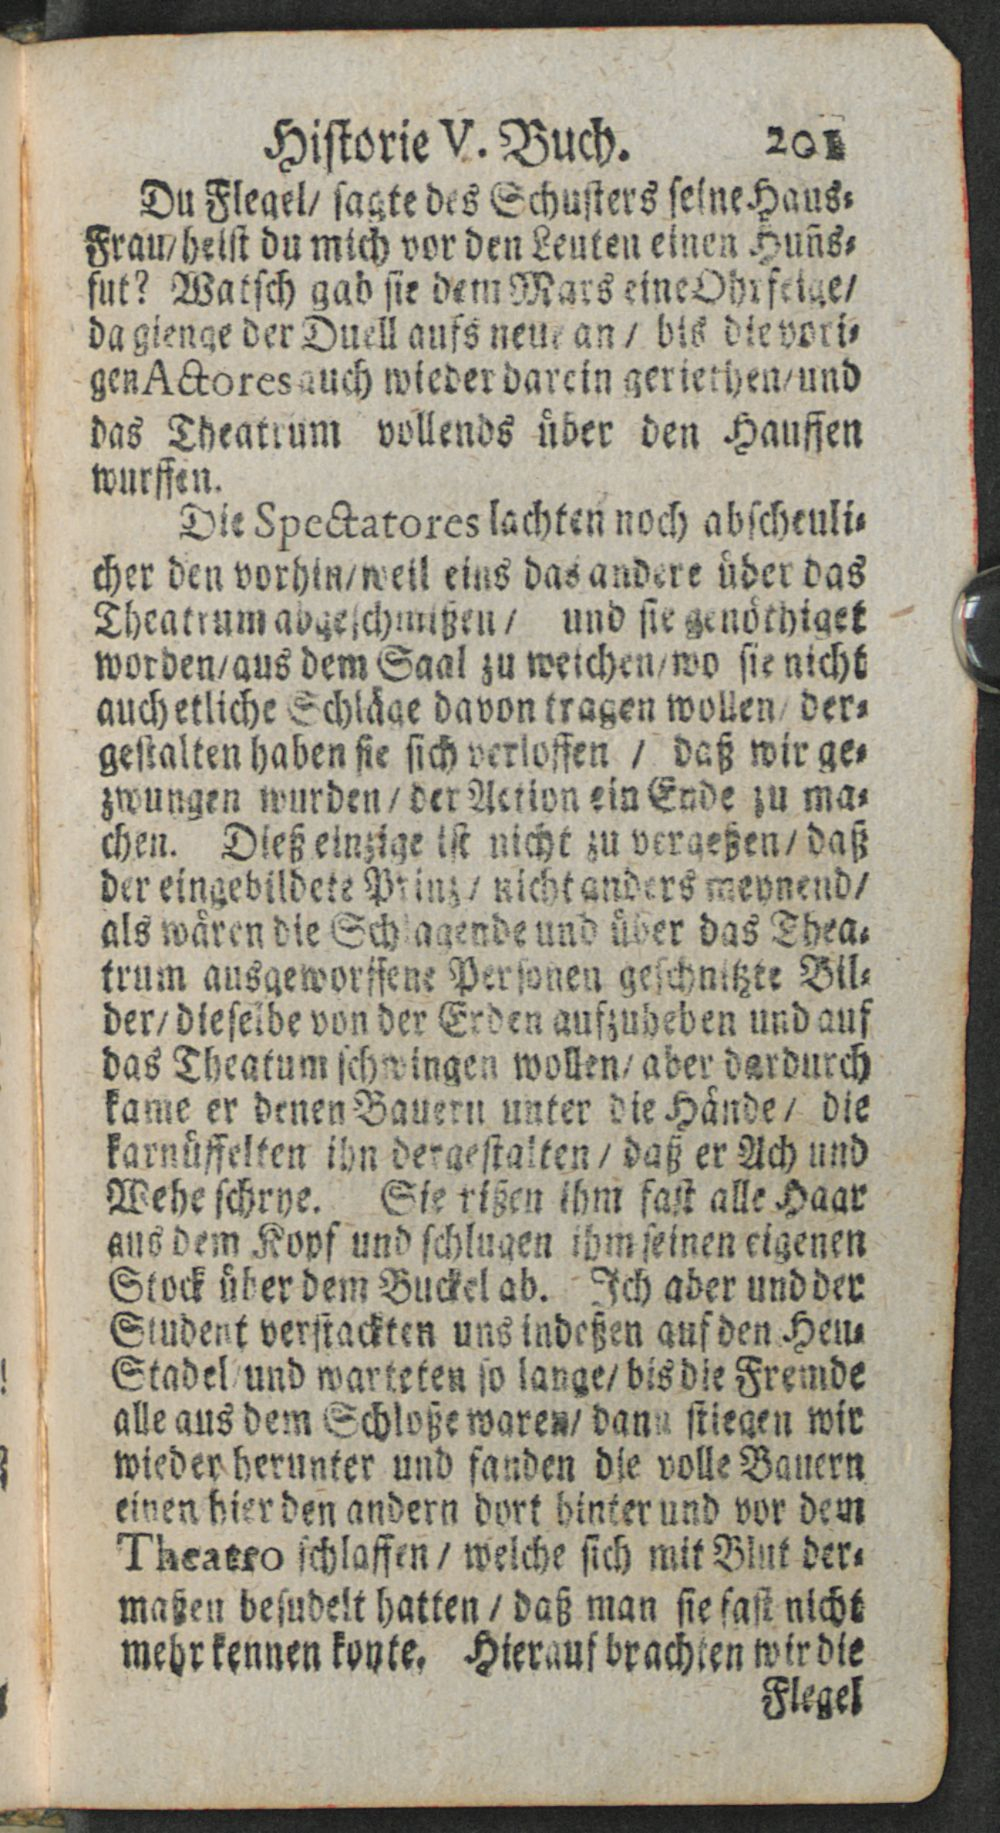 Historie V. Buch. 201
Du Flegel/ sagte des Schusters seine Haus-
Frau/ heist du mich vor den Leuten einen Huñs-
fut? Watsch gab sie dem Mars eine Ohrfeige/
da gienge der Duell aufs neue an / bis die vori-
gen Actores auch wieder darein geriethen/ und
das Theatrum vollends über den Hauffen
wurffen.
Die Spectatores lachten noch abscheuli-
cher den vorhin/ weil eins das andere über das
Theatrum abgeschmißen / und sie genöthiget
worden/ aus dem Saal zu weichen/ wo sie nicht
auch etliche Schläge davon tragen wollen/ der-
gestalten haben sie sich verloffen / daß wir ge-
zwungen wurden / der Action ein Ende zu ma-
chen. Dieß einzige ist nicht zu vergeßen / daß
der eingebildete Prinz / nicht anders meynend/
als wären die Schlagende und über das Thea-
trum ausgeworffene Personen geschnitzte Bil-
der/ dieselbe von der Erden aufzuheben und auf
das Theatum schwingen wollen/ aber dardurch
kame er denen Bauern unter die Hände / die
karnüffelten ihn dergestalten / daß er Ach und
Wehe schrye. Sie rißen ihm fast alle Haar
aus dem Kopf und schlugen ihm seinen eigenen
Stock über dem Buckel ab. Ich aber und der
Student verstackten uns indeßen auf den Heu-
Stadel/ und warteten so lange/ bis die Fremde
alle aus dem Schloße waren/ dann stiegen wir
wieder herunter und fanden die volle Bauern
einen hier den andern dort hinter und vor dem
Theatro schlaffen / welche sich mit Blut der-
maßen besudelt hatten / daß man sie fast nicht
mehr kennen konte. Hierauf brachten wir die
Flegel